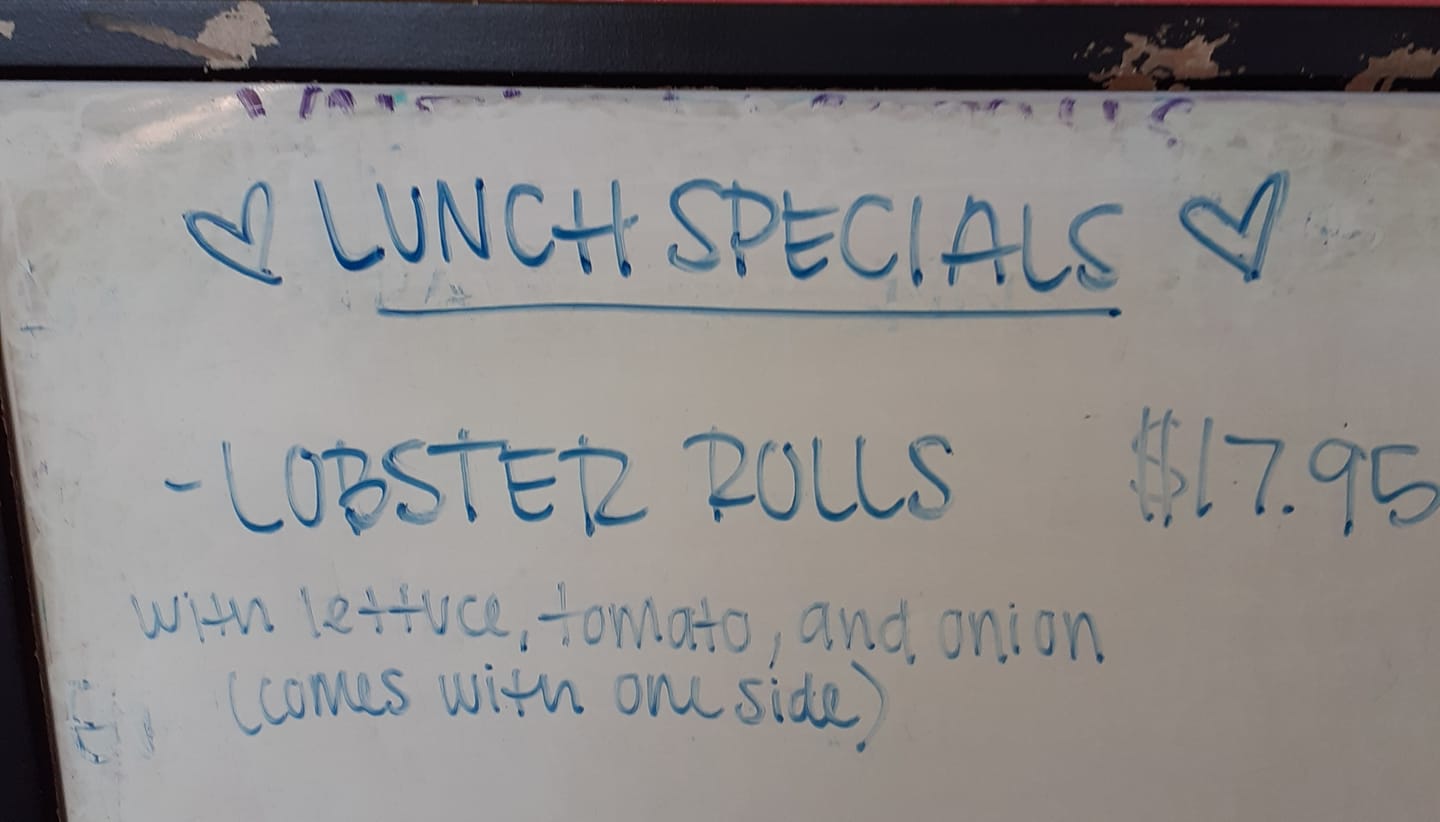 ♡ LUNCH SPECIALS ♡
- LOBSTER ROLLS $17.95
with lettuce, tomato, and onion
(comes with one side)